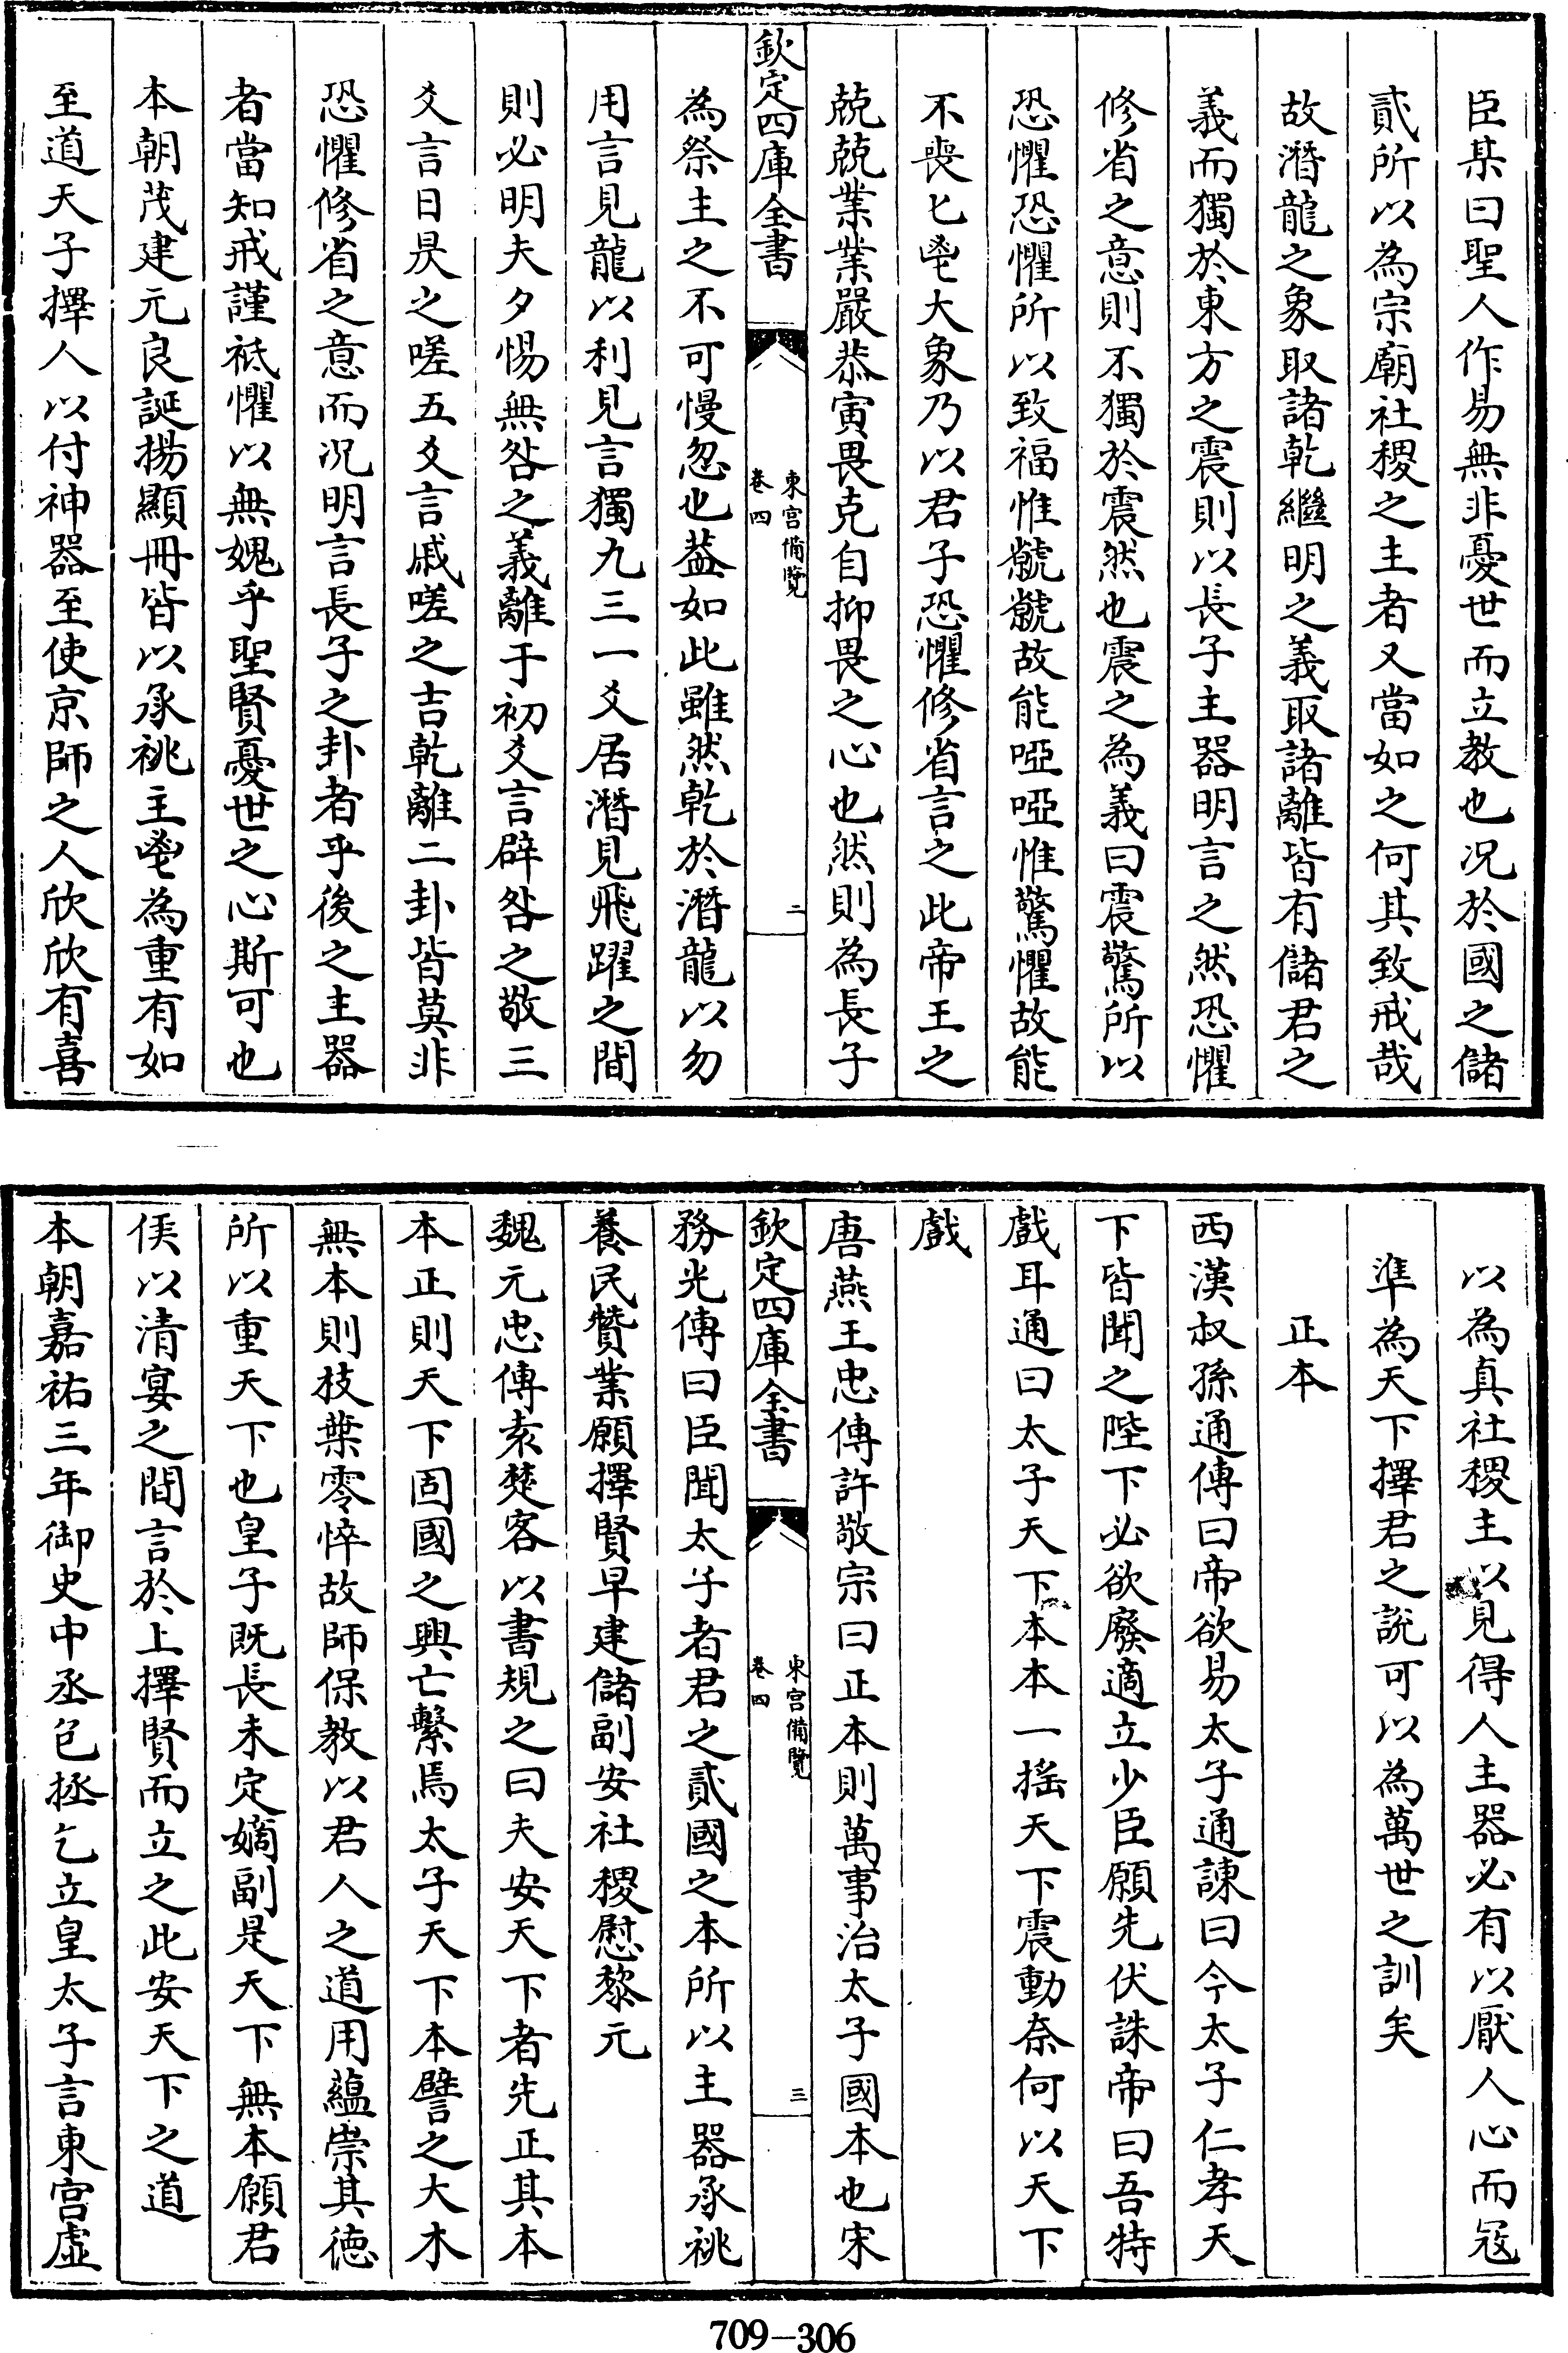 臣某曰聖人作易無非憂世而立教也况於國之儲
貳所以為宗廟社稷之主者又當如之何其致戒哉
故潛龍之象取諸乾繼明之義取諸離皆有儲君之
義而獨於東方之震則以長子主器明言之然恐懼
修省之意則不獨於震然也震之為義曰震驚所以
恐懼恐懼所以致福惟虩虩故能啞啞惟驚懼故能
不喪匕鬯大象乃以君子恐懼修省言之此帝王之
兢兢業業嚴恭寅畏克自抑畏之心也然則為長子
欽定四庫全書
東宮備覽
卷四
二
為祭主之不可慢忽也葢如此雖然乾於潛龍以勿
用言見龍以利見言獨九三一爻居潛見飛躍之間
則必明夫夕惕無咎之義離于初爻言辟咎之敬三
爻言日昃之嗟五爻言戚嗟之吉乾離二卦皆莫非
恐懼修省之意而况明言長子之卦者乎後之主器
者當知戒謹祗懼以無媿乎聖賢憂世之心斯可也
本朝茂建元良誕揚顯冊皆以承祧主鬯為重有如
至道天子擇人以付神器至使京師之人欣欣有喜
以為真社稷主以見得人主器必有以厭人心而冦
準為天下擇君之說可以為萬世之訓矣
正本
西漢叔孫通傳曰帝欲易太子通諫曰今太子仁孝天
下皆聞之陛下必欲廢適立少臣願先伏誅帝曰吾特
戲耳通曰太子天下本本一揺天下震動奈何以天下
戲
唐燕王忠傳許敬宗曰正本則萬事治太子國本也宋
欽定四庫全書
東宮備覽
卷四
三
務光傳曰臣聞太子者君之貳國之本所以主器承祧
養民贊業願擇賢早建儲副安社稷慰黎元
魏元忠傳袁楚客以書規之曰夫安天下者先正其本
本正則天下固國之興亡繫焉太子天下本譬之大木
無本則枝葉零悴故師保教以君人之道用蘊崇其徳
所以重天下也皇子既長未定嫡副是天下無本願君
侯以清宴之間言於上擇賢而立之此安天下之道
本朝嘉祐三年御史中丞包拯乞立皇太子言東宮虛
709—306